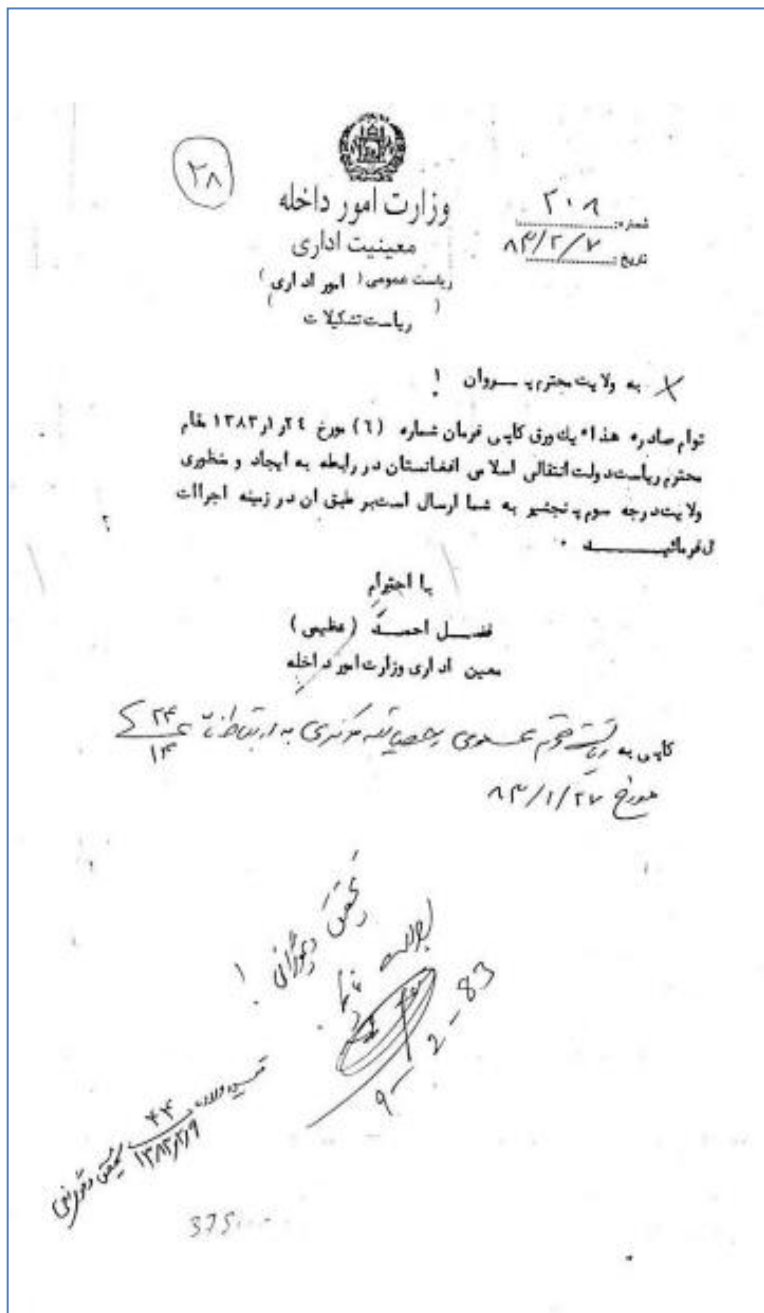 ۲۸
وزارت امور داخله
معینیت اداری
ریاست عمومی ( امور اداری )
( ریاست تشکیلات )
شماره: ۲۰۸
تاریخ: ۸۳/۲/۷
به ولایت محترم پــروان !
توام صادره هذا، یک ورق کاپی فرمان شماره (٦) مورخ ۲٤ر۱ر۱۳۸۳ مقام
محترم ریاست دولت انتقالی اسلامی افغانستان در رابطه به ایجاد و منظوری
ولایت درجه سوم پنجشیر به شما ارسال است بر طبق ان در زمینه اجراات
فرمائیـــد .
با احترام
فضــل احمــد (عظیمی)
معین اداری وزارت امور داخله
کاپی به ریاست محترم عمومی احصائیه مرکزی به ارتباط نامه ۲۴/۱۴
مورخ ۸۳/۱/۲۷
!
۹-2-83
۴۴
۱۳۸۳/۲/۹
375